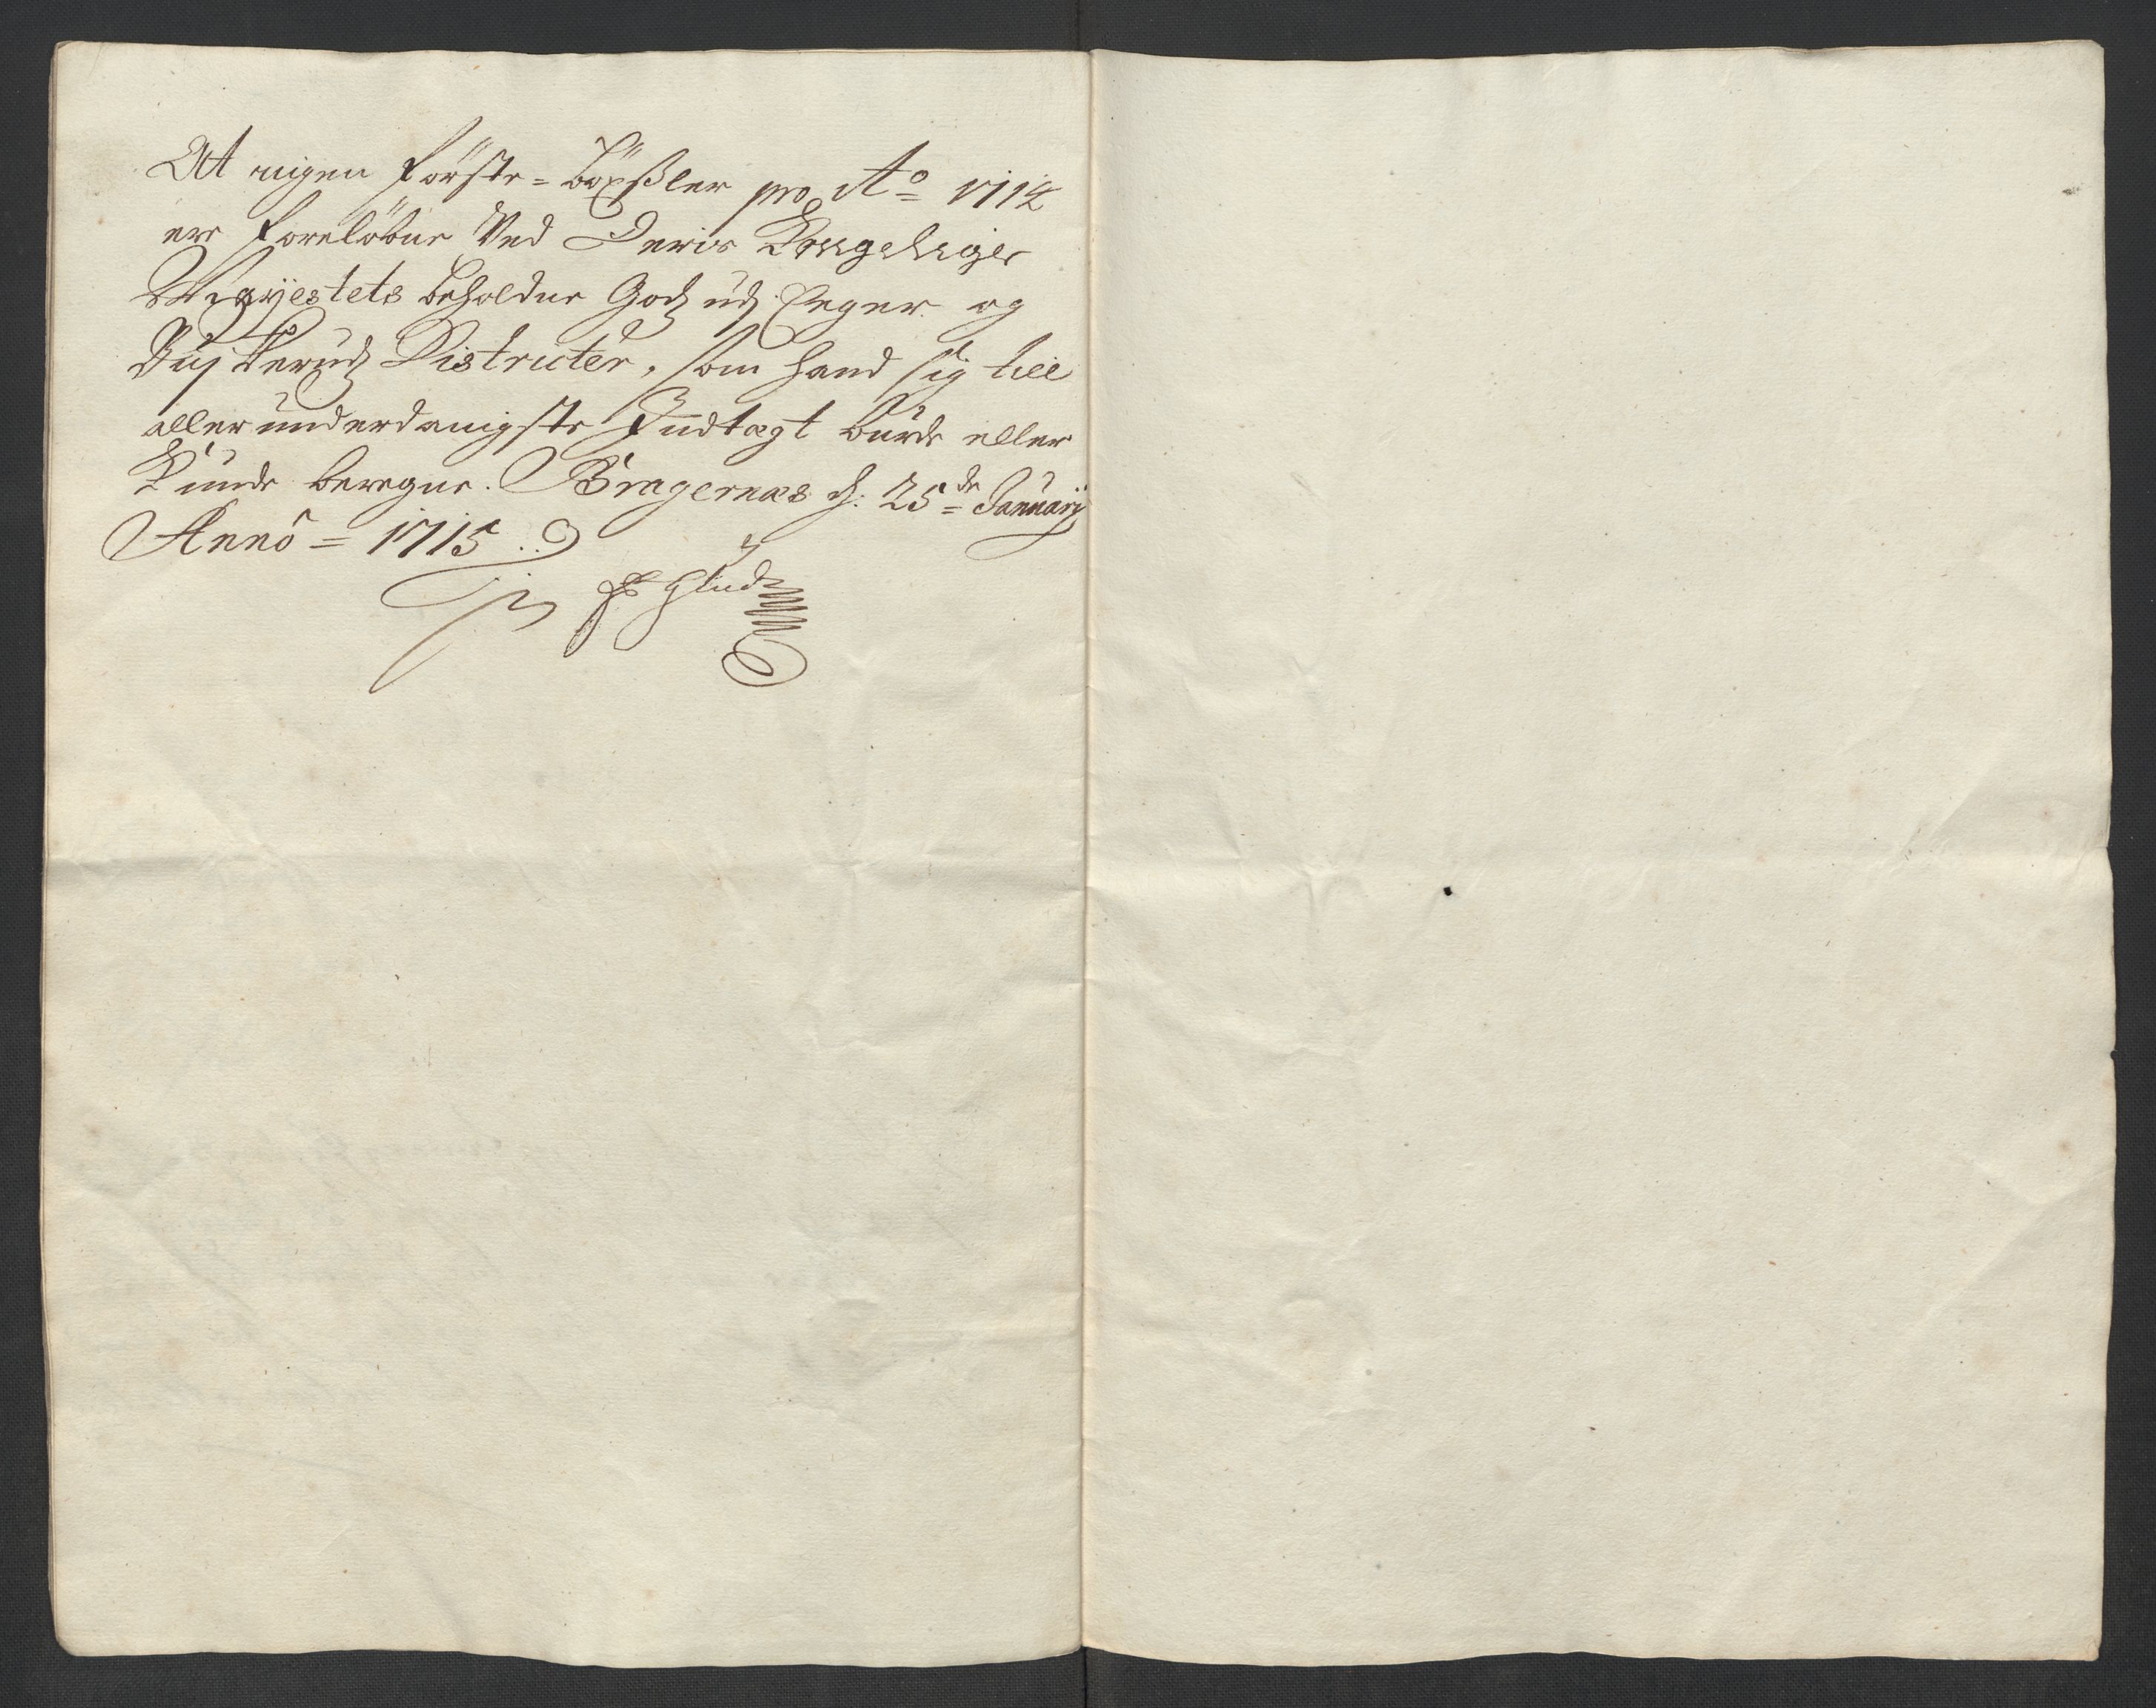 At ingen förste=böxßler pro Ao 1714
ere foreløbne Ved Deris Kongeliges
Mayestets beholdne Godz udj Eeger og
Buskeruds Districter, som hand sig till
allerunderdanigste Indtægt burde eller
Kunde beregne. Bragernæs d: 25de January
Anno = 1715
Glud